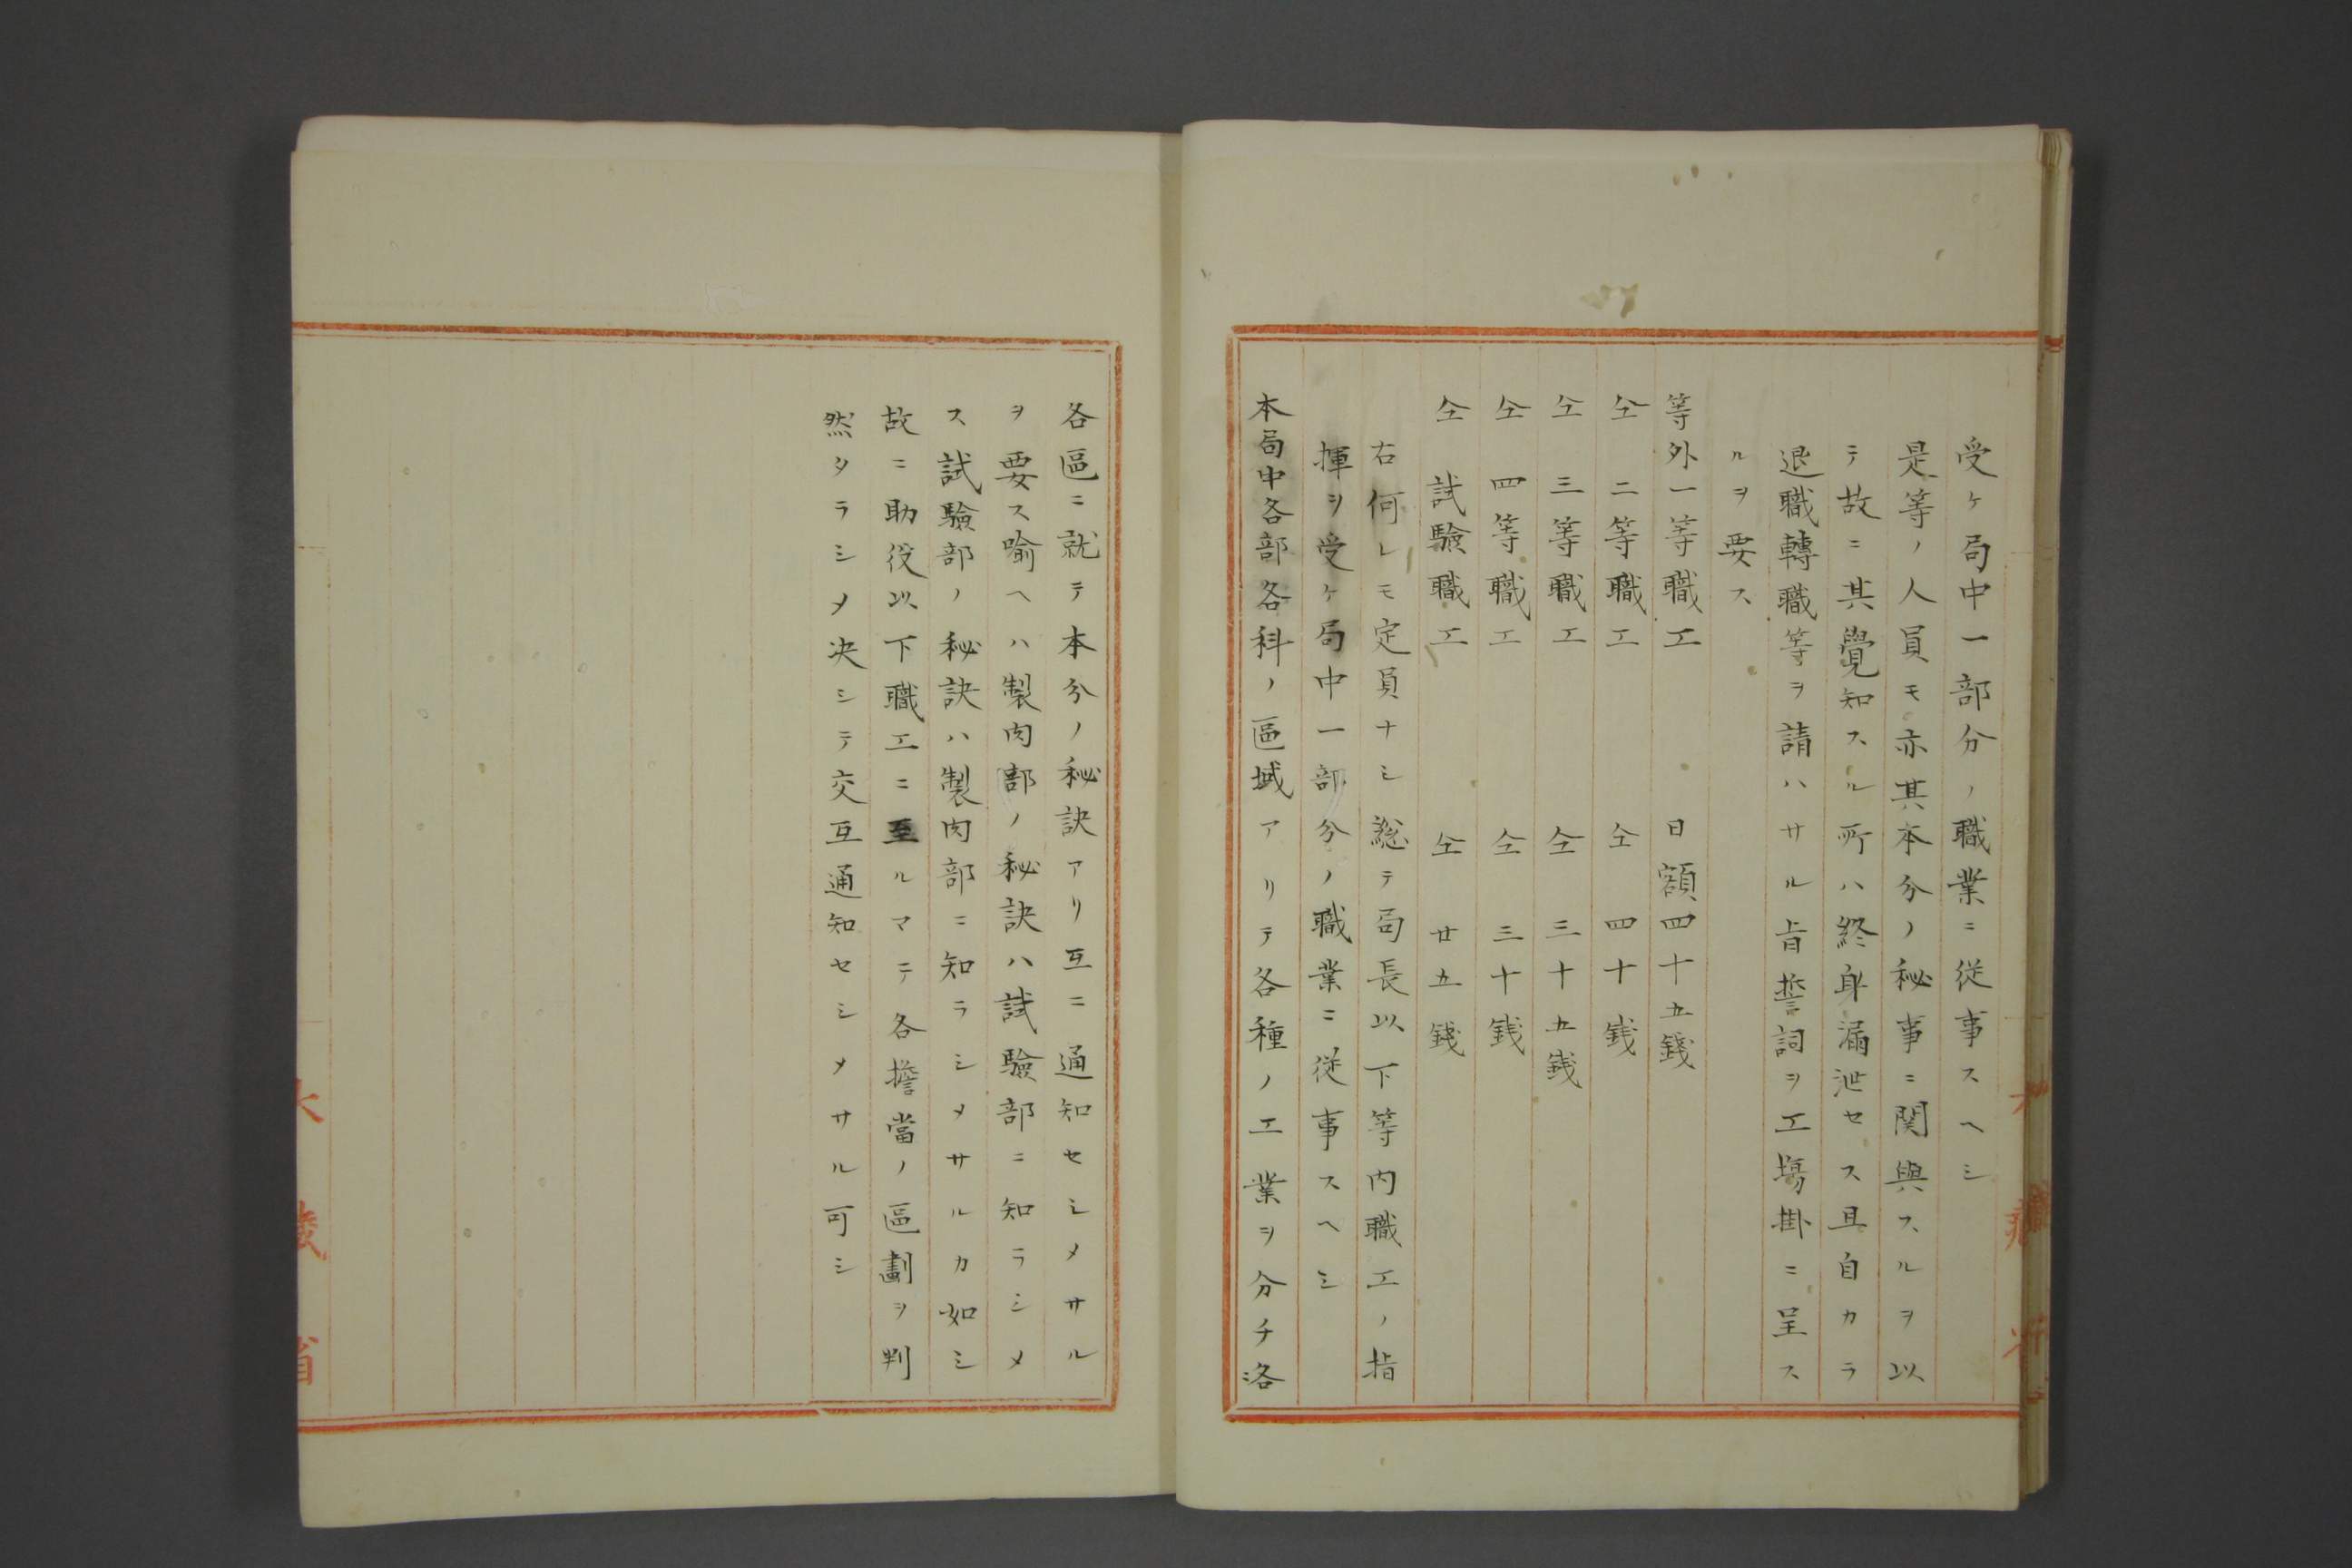 受ケ局中一部分ノ職業ニ従事スヘシ
是等ノ人員モ亦其本分ノ秘事ニ関與スルヲ以
テ故ニ其覺知スル所ハ終身漏泄セス且自カラ
退職轉職等ヲ請ハサル旨誓詞ヲ工場掛ニ呈ス
ルヲ要ス
等外一等職工 日額四十五錢
仝 二等職工 仝 四十銭
仝 三等職工 仝 三十五銭
仝 四等職工 仝 三十銭
仝 試驗職工 仝 廿五錢
右何レモ定員ナシ総テ局長以下等内職工ノ指
揮ヲ受ケ局中一部分ノ職業ニ従事スヘシ
本局中各部各科ノ區域アリテ各種ノ工業ヲ分チ
各區ニ就テ本分ノ秘訣アリ互ニ通知セシメサル
ヲ要ス喻ヘハ製肉部ノ秘訣ハ試驗部ニ知ラシメ
ス試驗部ノ秘訣ハ製肉部ニ知ラシメサルカ如シ
故ニ助役以下職工ニ至ルマテ各擔當ノ區劃ヲ判
然タラシメ决シテ交互通知セシメサル可シ
大藏省